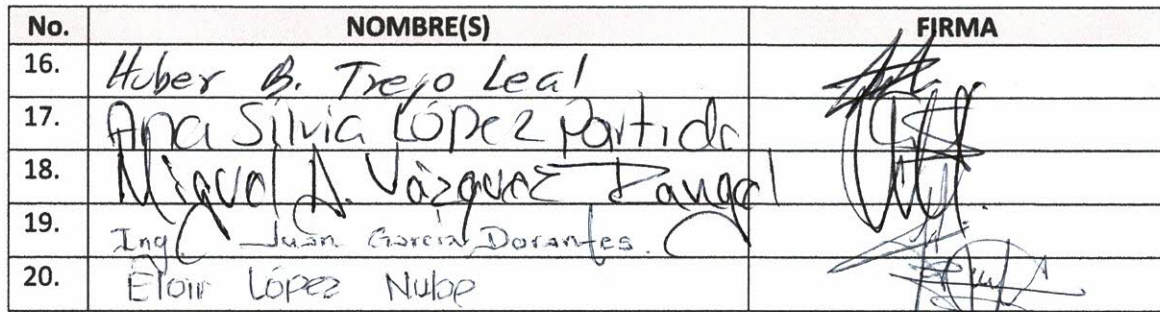 No. NOMBRE(S) FIRMA
16. Huber B. Trejo Leal
17. Ana Silvia López Partida
18. Miguel A. Vázquez Rangel
19. Ing. Juan García Dorantes.
20. López